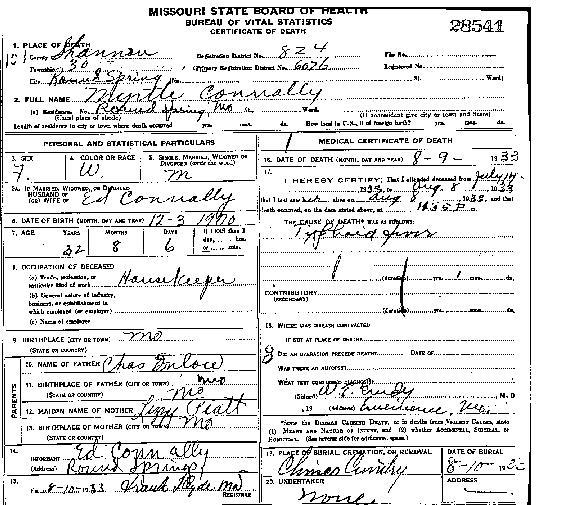 MISSOURI STATE BOARD OF HEALTH
BUREAU OF VITAL STATISTICS
CERTIFICATE OF DEATH
28541
1. PLACE OF DEATH
County Shannon Registration District No. 824 File No.
Township Primary Registration District No. Registered No.
City Round Spring No. St. Ward
2. FULL NAME Myrtle Connally
(a) Residence. No. Round Spring, Mo St. Ward.
(Usual place of abode) (If nonresident give city or town and State)
Length of residence in city or town where death occurred yrs. mos. ds. How long in U.S., if of foreign birth? yrs. mos. ds.
PERSONAL AND STATISTICAL PARTICULARS
3. SEX 4. COLOR OR RACE 5. SINGLE, MARRIED, WIDOWED OR DIVORCED (write the word)
F. W. M
5A. IF MARRIED, WIDOWED, OR DIVORCED
HUSBAND OF
(OR) WIFE OF Ed Connally
6. DATE OF BIRTH (MONTH, DAY AND YEAR) 12-3 1900
7. AGE YEARS MONTHS DAYS If LESS than 1 day, hrs. or min.
32 8 6
8. OCCUPATION OF DECEASED
(a) Trade, profession, or particular kind of work Housekeeper
(b) General nature of industry, business, or establishment in which employed (or employer)
(c) Name of employer
9. BIRTHPLACE (CITY OR TOWN) Mo
(STATE OR COUNTRY)
PARENTS
10. NAME OF FATHER Chas Enloe
11. BIRTHPLACE OF FATHER (CITY OR TOWN) Mo
(STATE OR COUNTRY) Mo
12. MAIDEN NAME OF MOTHER Lizzy Piatt
13. BIRTHPLACE OF MOTHER (CITY OR TOWN) Mo
(STATE OR COUNTRY)
14. INFORMANT Ed Connally
(Address) Round Springs
15. 8-10-1933 Frank Hyde MD
REGISTRAR
MEDICAL CERTIFICATE OF DEATH
16. DATE OF DEATH (MONTH, DAY AND YEAR) 8-9- 1933
17. I HEREBY CERTIFY, That I attended deceased from July 14
1933, to Aug 8, 1933
that I last saw her alive on Aug 8, 1933, and that
death occurred, on the date stated above, at
THE CAUSE OF DEATH WAS AS FOLLOWS:
Typhoid fever
(duration) yrs. 1 mos. ds.
CONTRIBUTORY
(SECONDARY)
(duration) yrs. mos. ds.
18. WHERE WAS DISEASE CONTRACTED
IF NOT AT PLACE OF DEATH
DID AN OPERATION PRECEDE DEATH? DATE OF
WAS THERE AN AUTOPSY?
WHAT TEST CONFIRMED DIAGNOSIS?
(Signed) M. D.
, 19 (Address) Eminence, Mo.
*State the DISEASE CAUSING DEATH, or in deaths from VIOLENT CAUSES, state
(1) MEANS AND NATURE OF INJURY, and (2) whether ACCIDENTAL, SUICIDAL, or
HOMICIDAL. (See reverse side for additional space.)
19. PLACE OF BURIAL, CREMATION, OR REMOVAL DATE OF BURIAL
8-10- 1933
20. UNDERTAKER ADDRESS
None